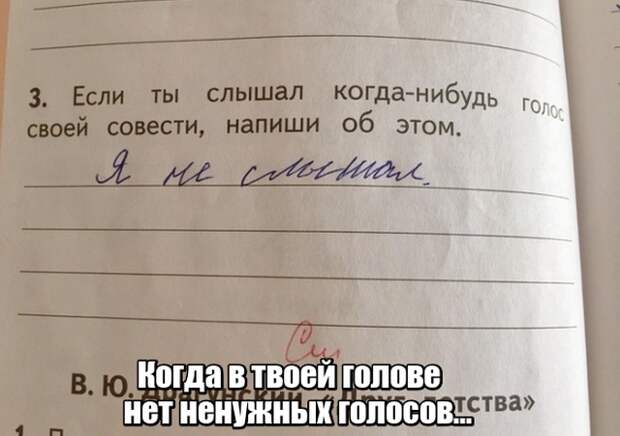 3. Если ты слышал когда-нибудь голос
своей совести, напиши об этом.
Я не слышал.
См
В. Ю. Драгунский «Друг детства»
Когда в твоей голове
нет ненужных голосов...
1.